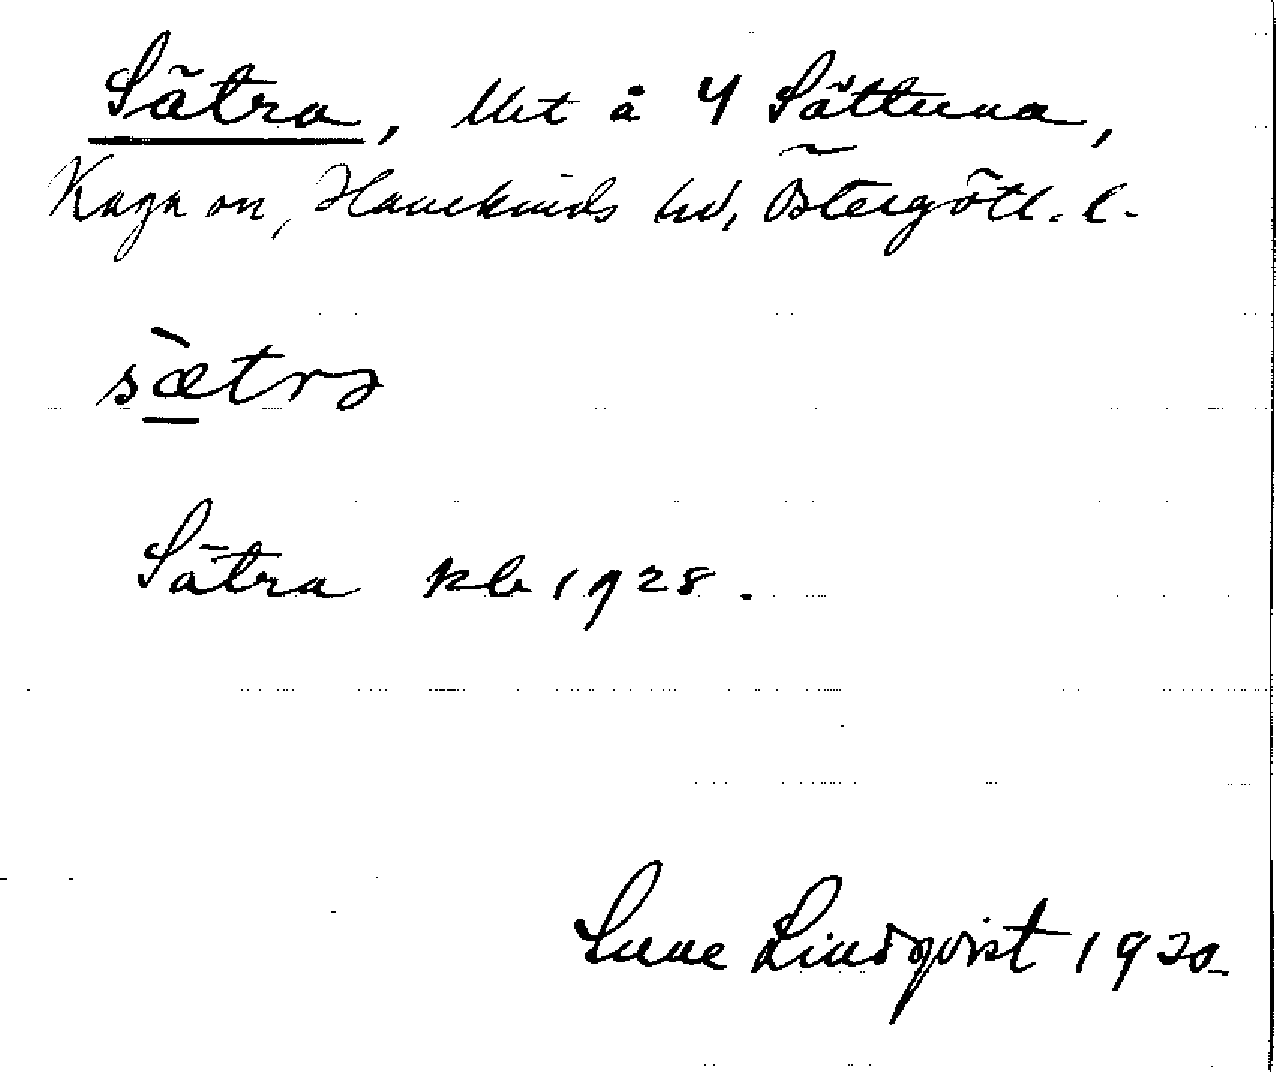 Sätra, lht å 4 Sättuna,
Kaga sn, Hanekinds hd, Östergötl. l.
sætrɔ
Sätra kb 1928.
Sune Lindqvist 1920